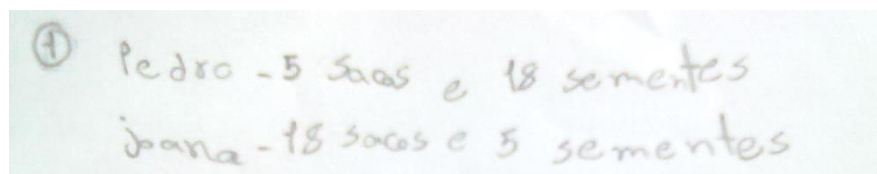 ① Pedro - 5 sacos e 18 sementes
joana - 18 sacos e 5 sementes